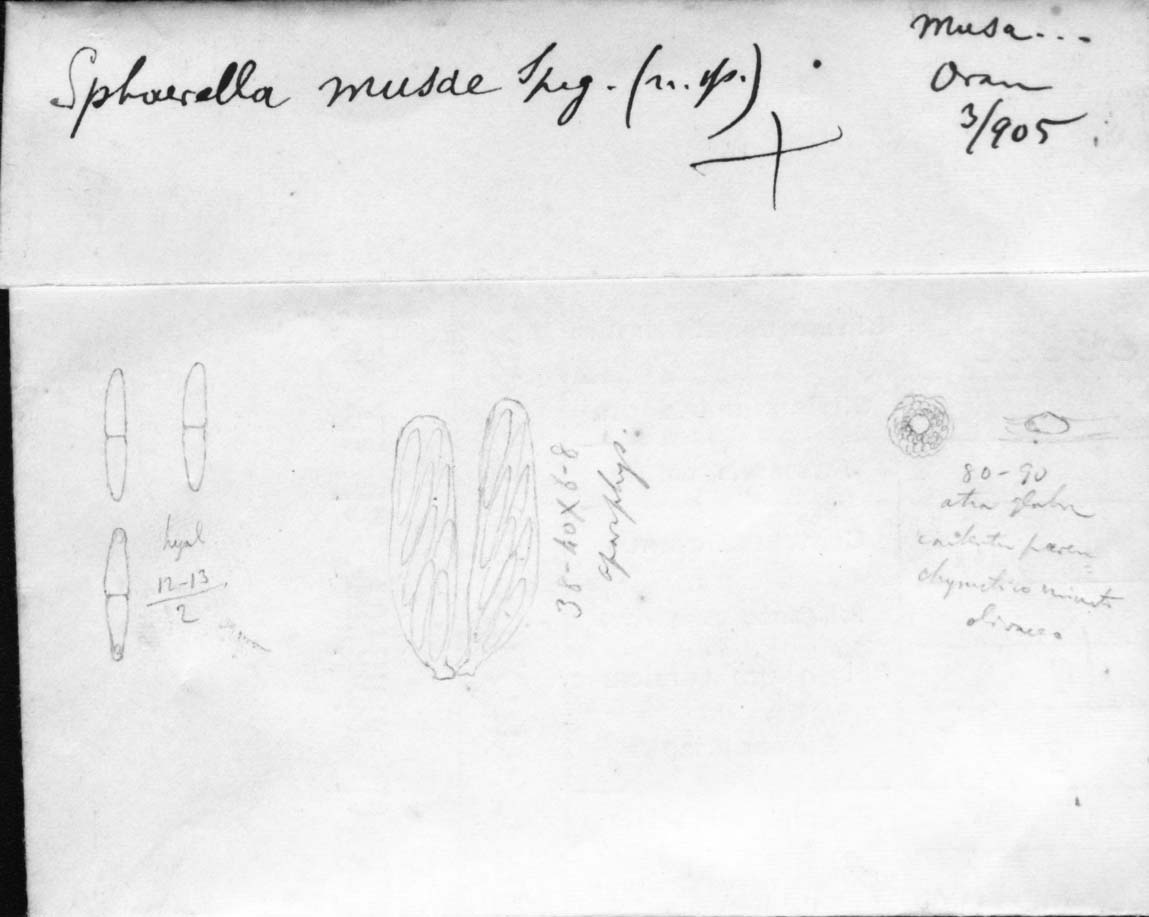 Sphaerella musae Speg. (n. sp.)
Musa...
Oran
3/905
hyal
12-13
2
38-40 X 6-8
aparphys.
80-90
atra glabra
contextu paren
chymatico minute
olivaceo